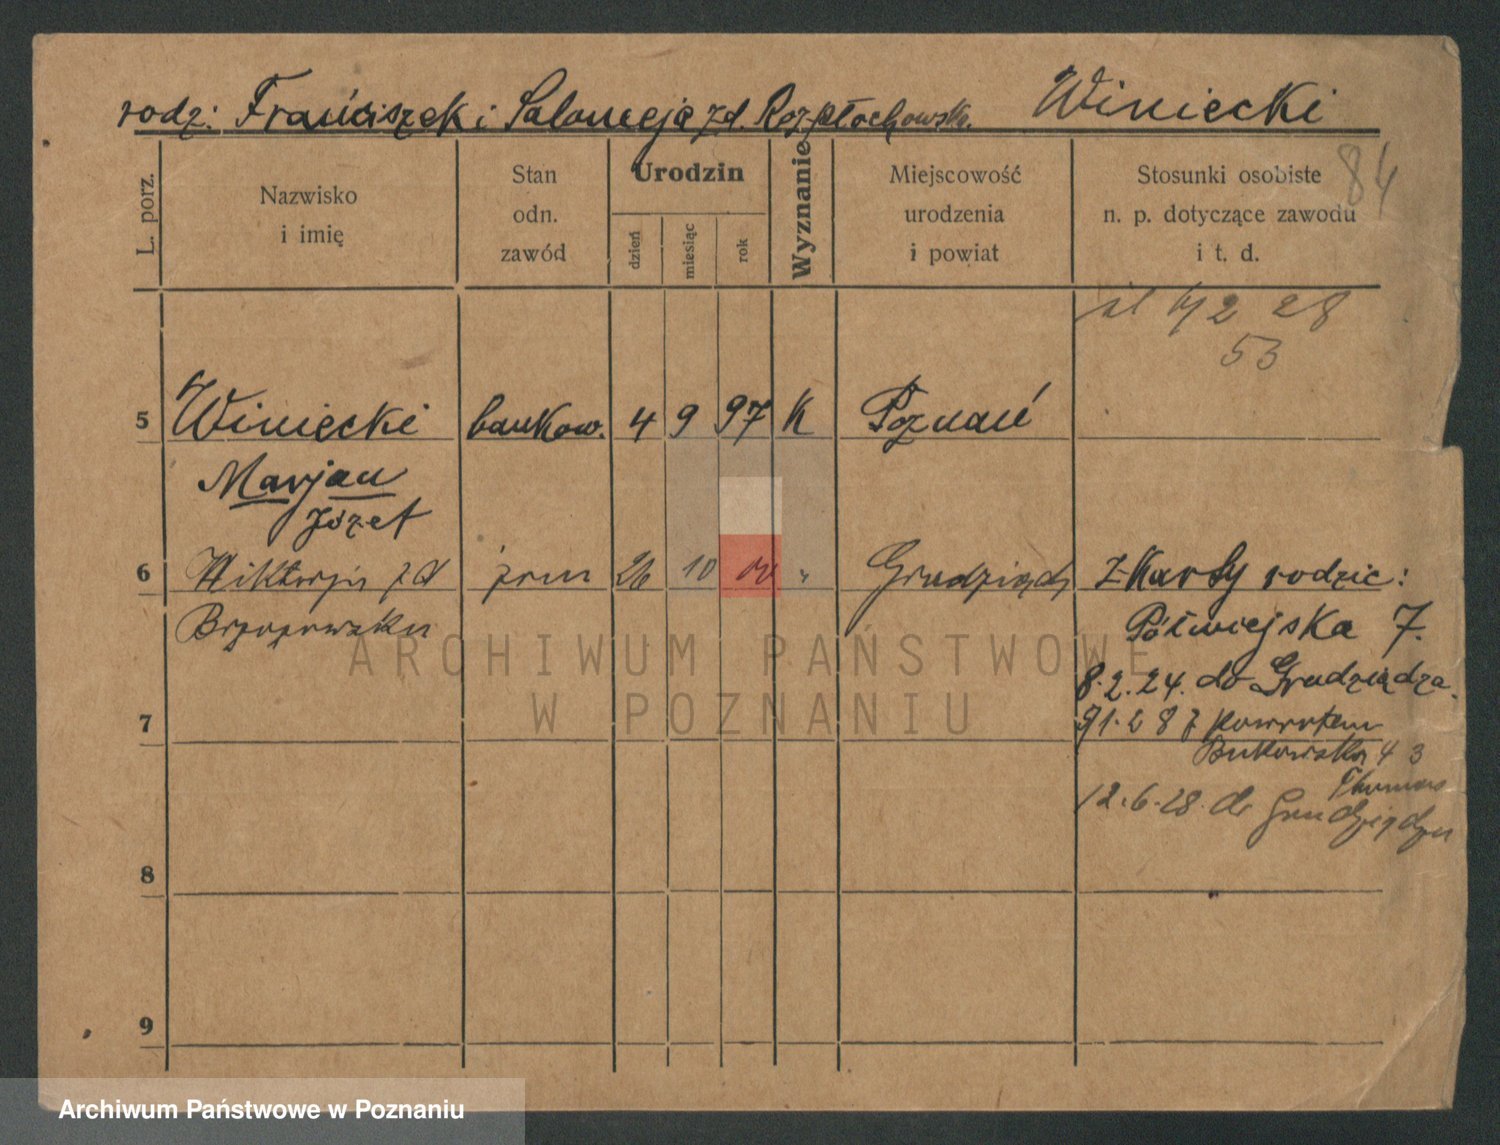 rodz: Franciszek i Salomeja zd. Rozpłochowska. Winiecki
84
L. porz.
Nazwisko
i imię
Stan
odn.
zawód
Urodzin
dzień
miesiąc
rok
Wyznanie
Miejscowość
urodzenia
i powiat
Stosunki osobiste
n. p. dotyczące zawodu
i t. d.
2 28
53
5 Winiecki bankow. 4 9 97 K Poznań
Marjan
Józef
6 Wiktorja zd żona 26 10 " Grudziądz z Karty rodzic:
Brzozowska Półwiejska 7.
8.2.24. do Grudziądza.
7 powrotem
Bukowska 43
Thomas
12.6.28. do Grudziądza
8
9
ARCHIWUM PAŃSTWOWE
W POZNANIU
Archiwum Państwowe w Poznaniu